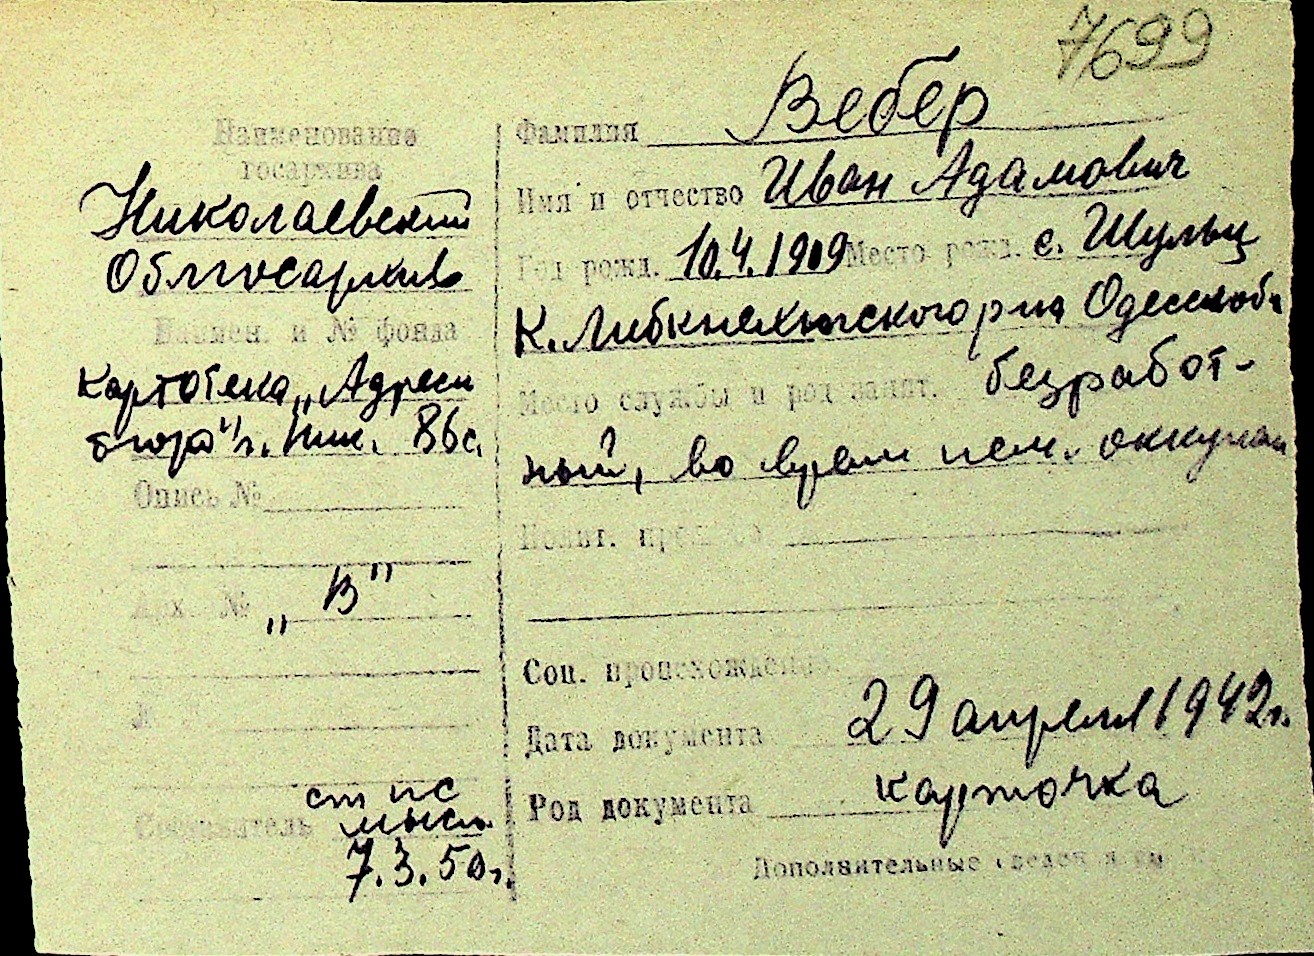 7699
Наименование
госархива
Николаевский
Облгосархив
Наимен. и № фонда
картотека „Адресн
бюро" г. Ник. 86с.
Опись №
Арх. № „В"
№
Составитель ст пс
мысл.
7.3.50г.
Фамилия Вебер
Имя и отчество Иван Адамович
Год рожд. 10.4.1909 Место рожд. с. Шульц
К. Либкнехтского р на Одесск об
Место службы и род занят. безработ-
ный, во врем нем. оккупац
Полит. прошлое
Соц. происхождение
Дата документа 29 апреля 1942г.
Род документа карточка
Дополнительные сведения